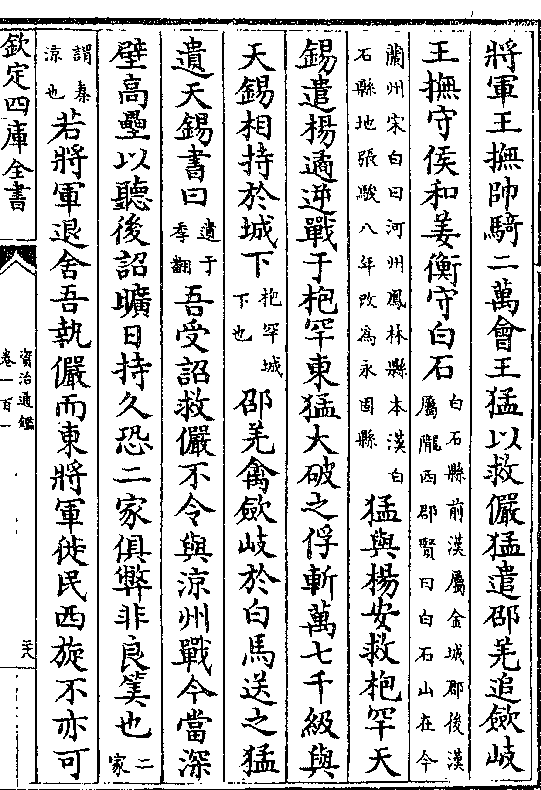 將軍王撫帥騎二萬會王猛以救儼猛遣邵羌追歛岐
王撫守侯和姜衡守白石白石縣前漢屬金城郡後漢屬隴西郡賢曰白石山在今
蘭州宋白曰河州鳳林縣本漢白石縣地張駿八年改為永固縣猛與楊安救枹罕天
錫遣楊遹逆戰于枹罕東猛大破之俘斬萬七千級與
天錫相持於城下枹罕城下也邵羌禽歛岐於白馬送之猛
遺天錫書曰遺于季翻吾受詔救儼不令與涼州戰今當深
壁高壘以聽後詔曠日持久恐二家俱弊非良筭也二家
謂秦涼也若將軍退舍吾執儼而東將軍徙民西旋不亦可
欽定四庫全書
資治通鑑
卷一百一
二十八